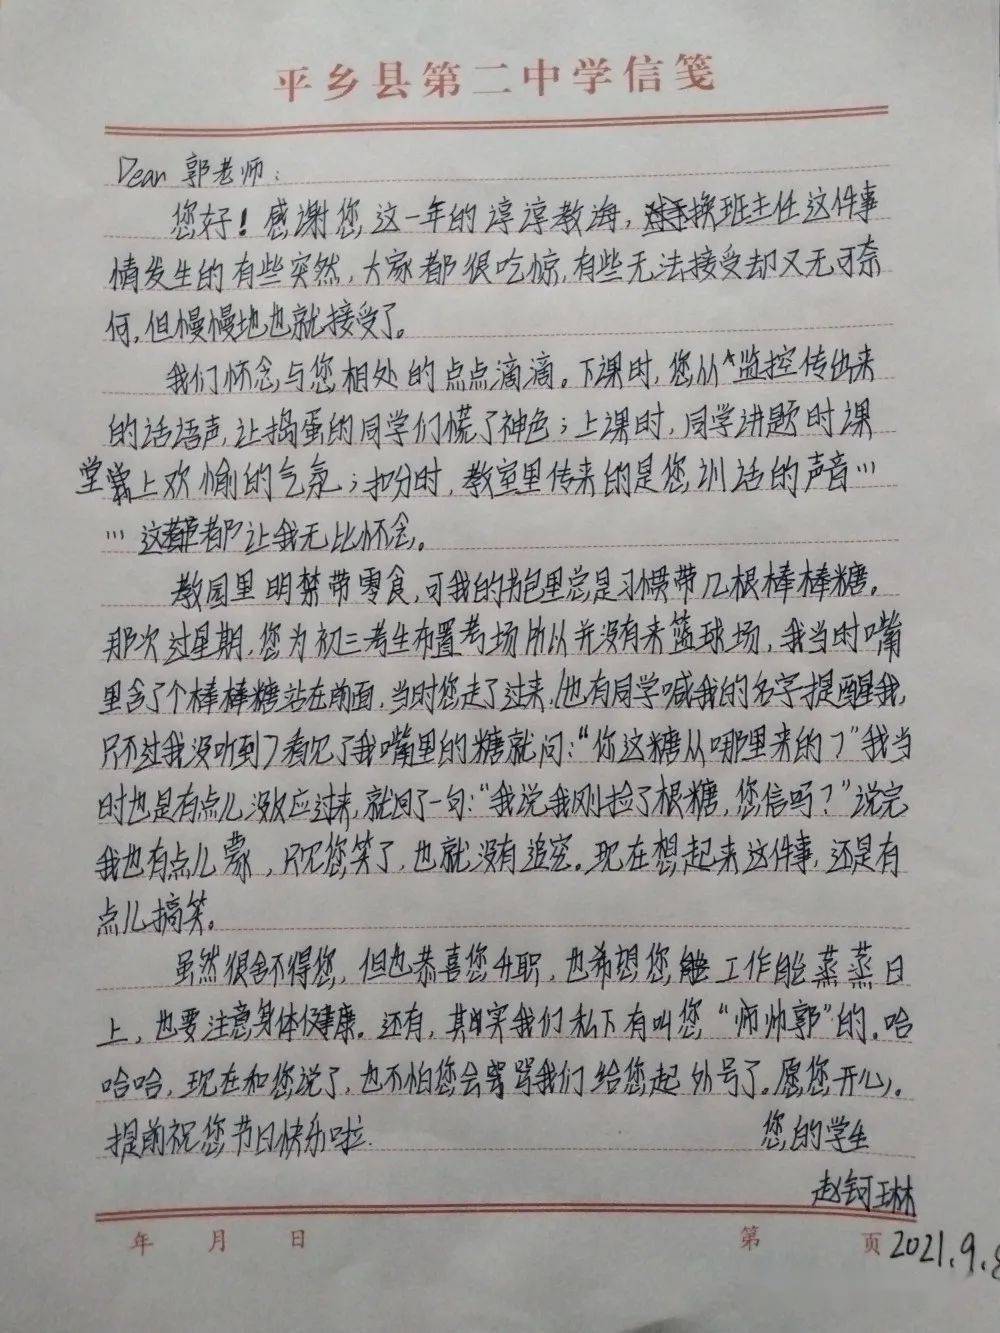 平乡县第二中学信笺
Dear 郭老师：
您好！感谢您这一年的谆谆教海，对于换班主任这件事
情发生的有些突然，大家都很吃惊，有些无法接受却又无可奈
何，但慢慢地也就接受了。
我们怀念与您相处的点点滴滴。下课时，您从监控传出来
的话语声，让捣蛋的同学们慌了神色；上课时，同学讲题时课
堂上欢愉的气氛；扣分时，教室里传来的是您训话的声音…
…这都让我无比怀念。
教园里明禁带零食，可我的书包里总是习惯带几根棒棒糖。
那次过星期，您为初三考生布置考场所以并没有来篮球场，我当时嘴
里含了个棒棒糖站在前面，当时您走了过来，(也有同学喊我的名字提醒我，
只不过我没听到)看见了我嘴里的糖就问：“你这糖从哪里来的？”我当
时也是有点儿没反应过来，就回了一句：“我说我刚捡了根糖，您信吗？”说完
我也有点儿蒙，只见您笑了，也就没有追究。现在想起来这件事，还是有
点儿搞笑。
虽然很舍不得您，但也恭喜您升职，也希望您工作能蒸蒸日
上，也要注意身体健康。还有，其实我们私下有叫您“师帅郭”的。哈
哈哈，现在和您说了，也不怕您会骂我们给您起外号了。愿您开心。
提前祝您节日快乐啦.
您的学生
赵钶琳
年 月 日 第 页
2021.9.8